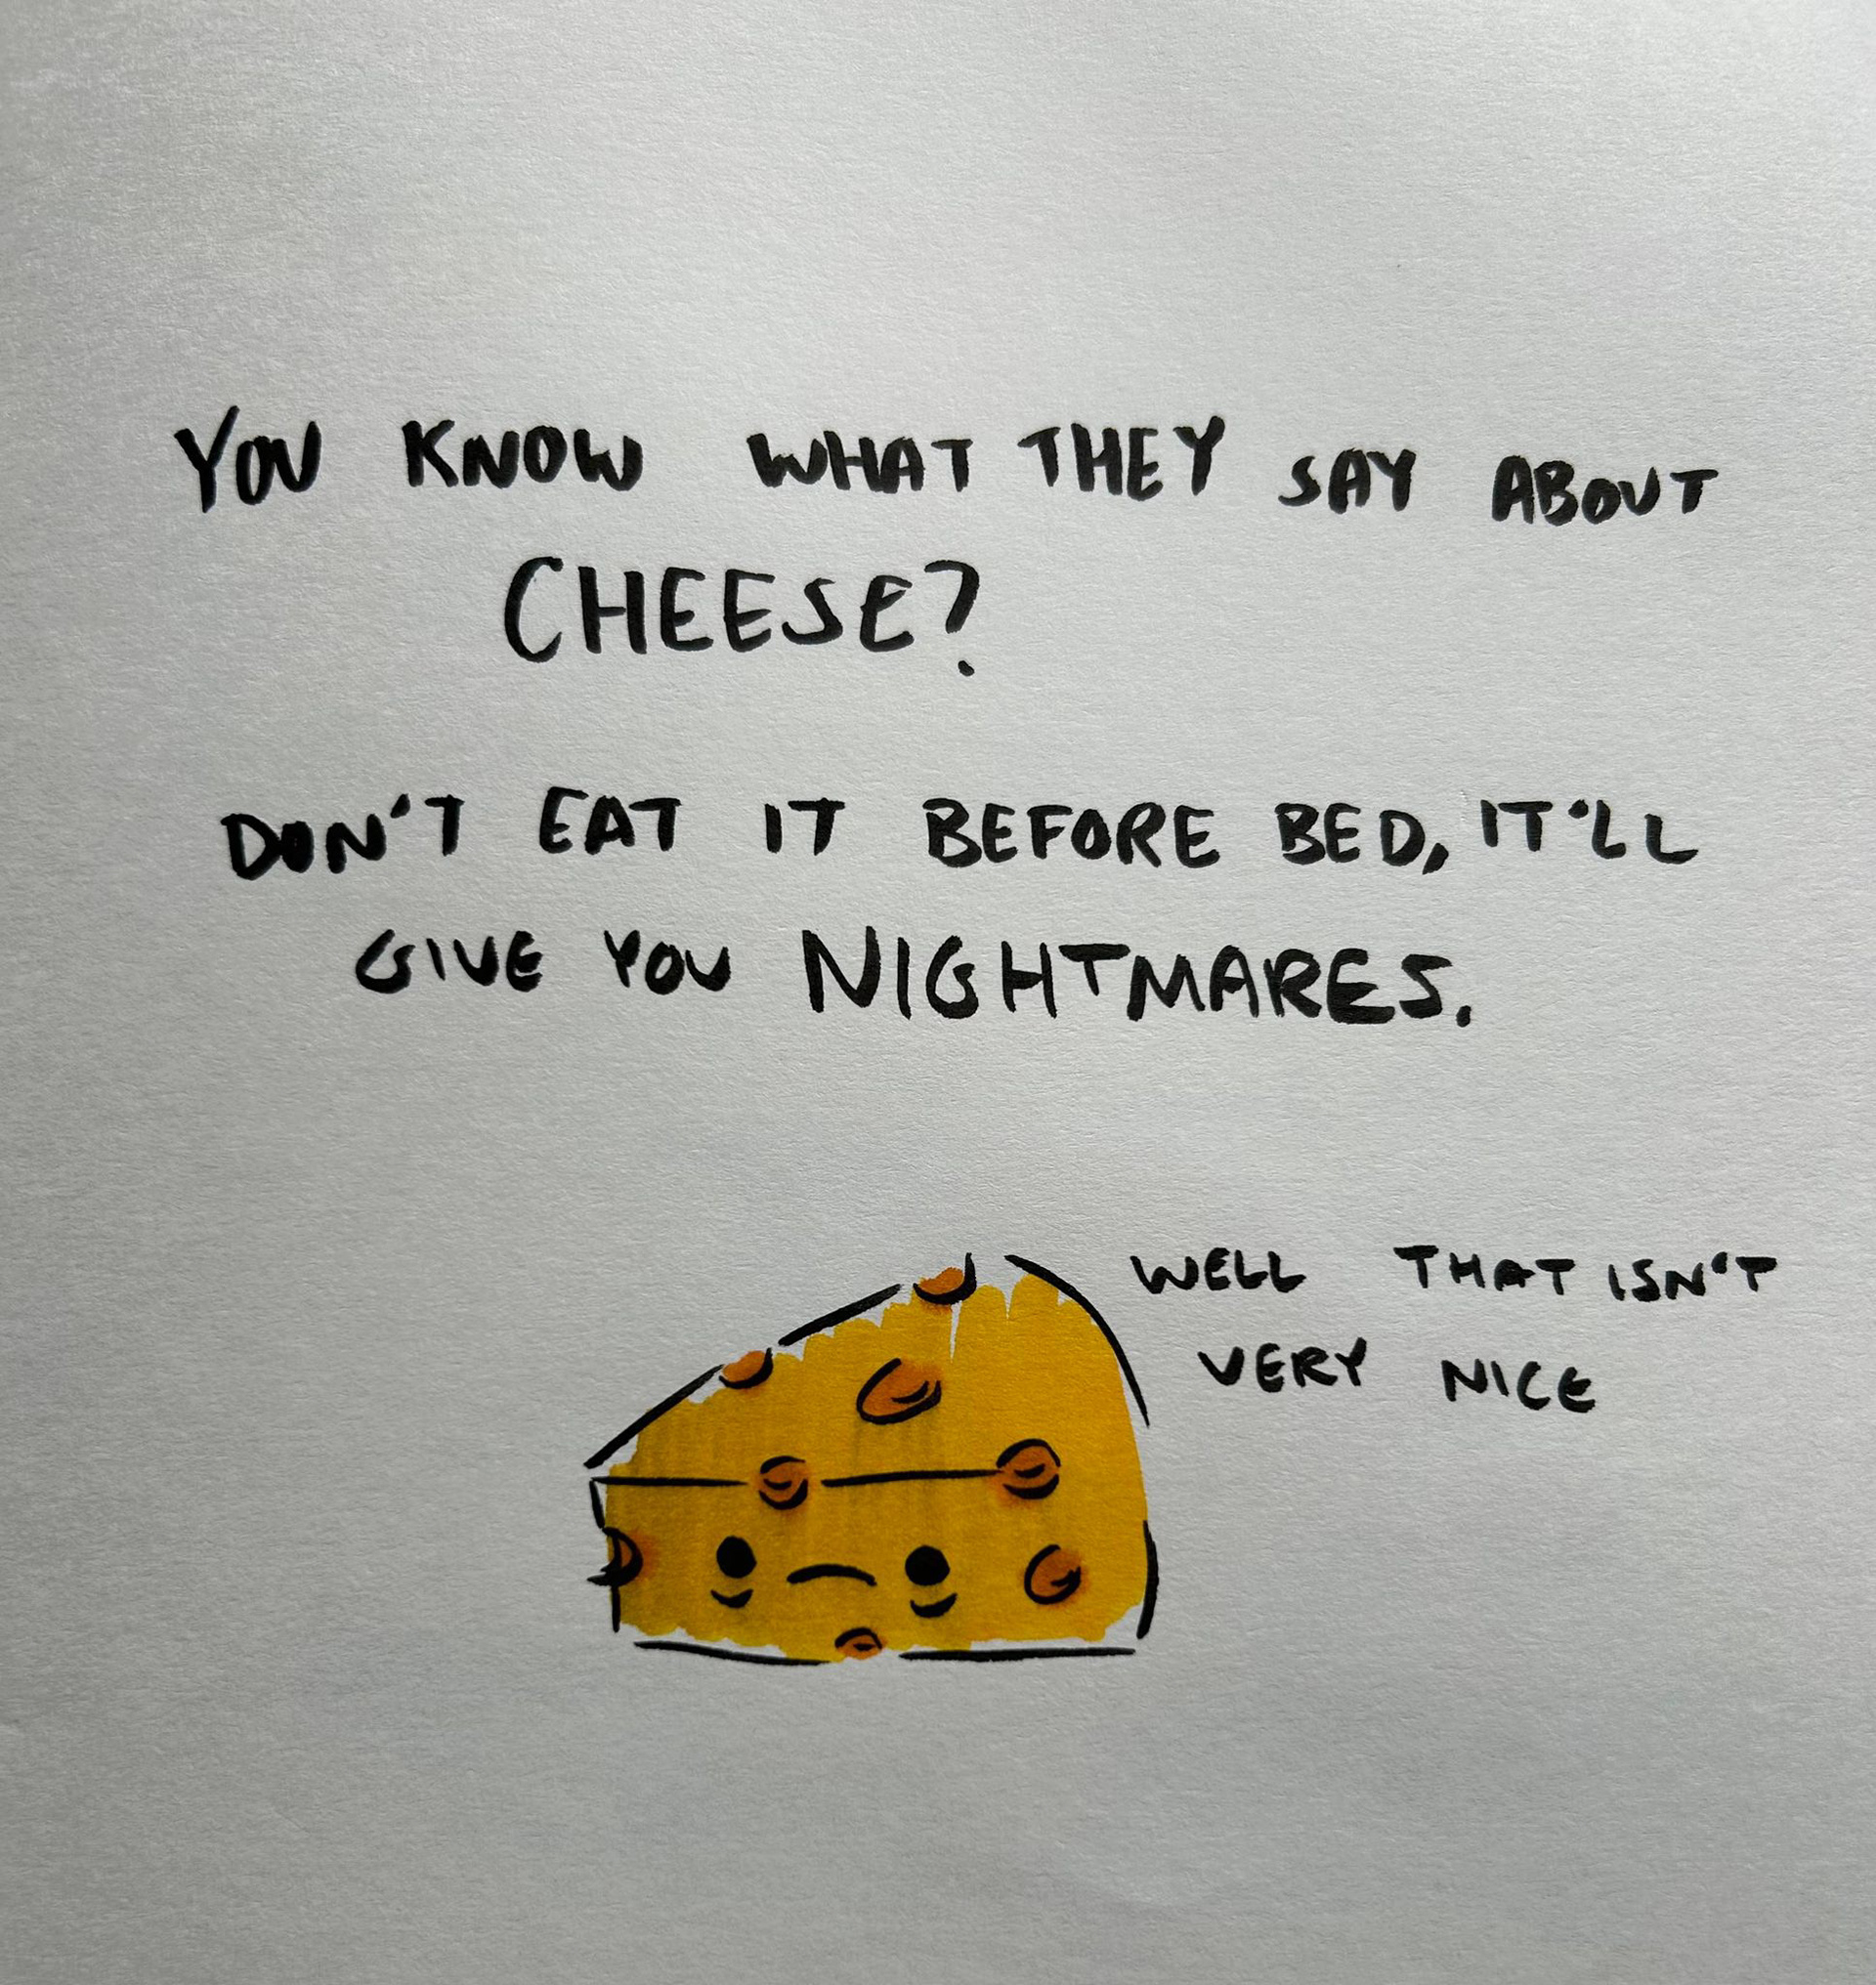 YOU KNOW WHAT THEY SAY ABOUT
CHEESE?
DON'T EAT IT BEFORE BED, IT'LL
GIVE YOU NIGHTMARES.
WELL THAT ISN'T
VERY NICE